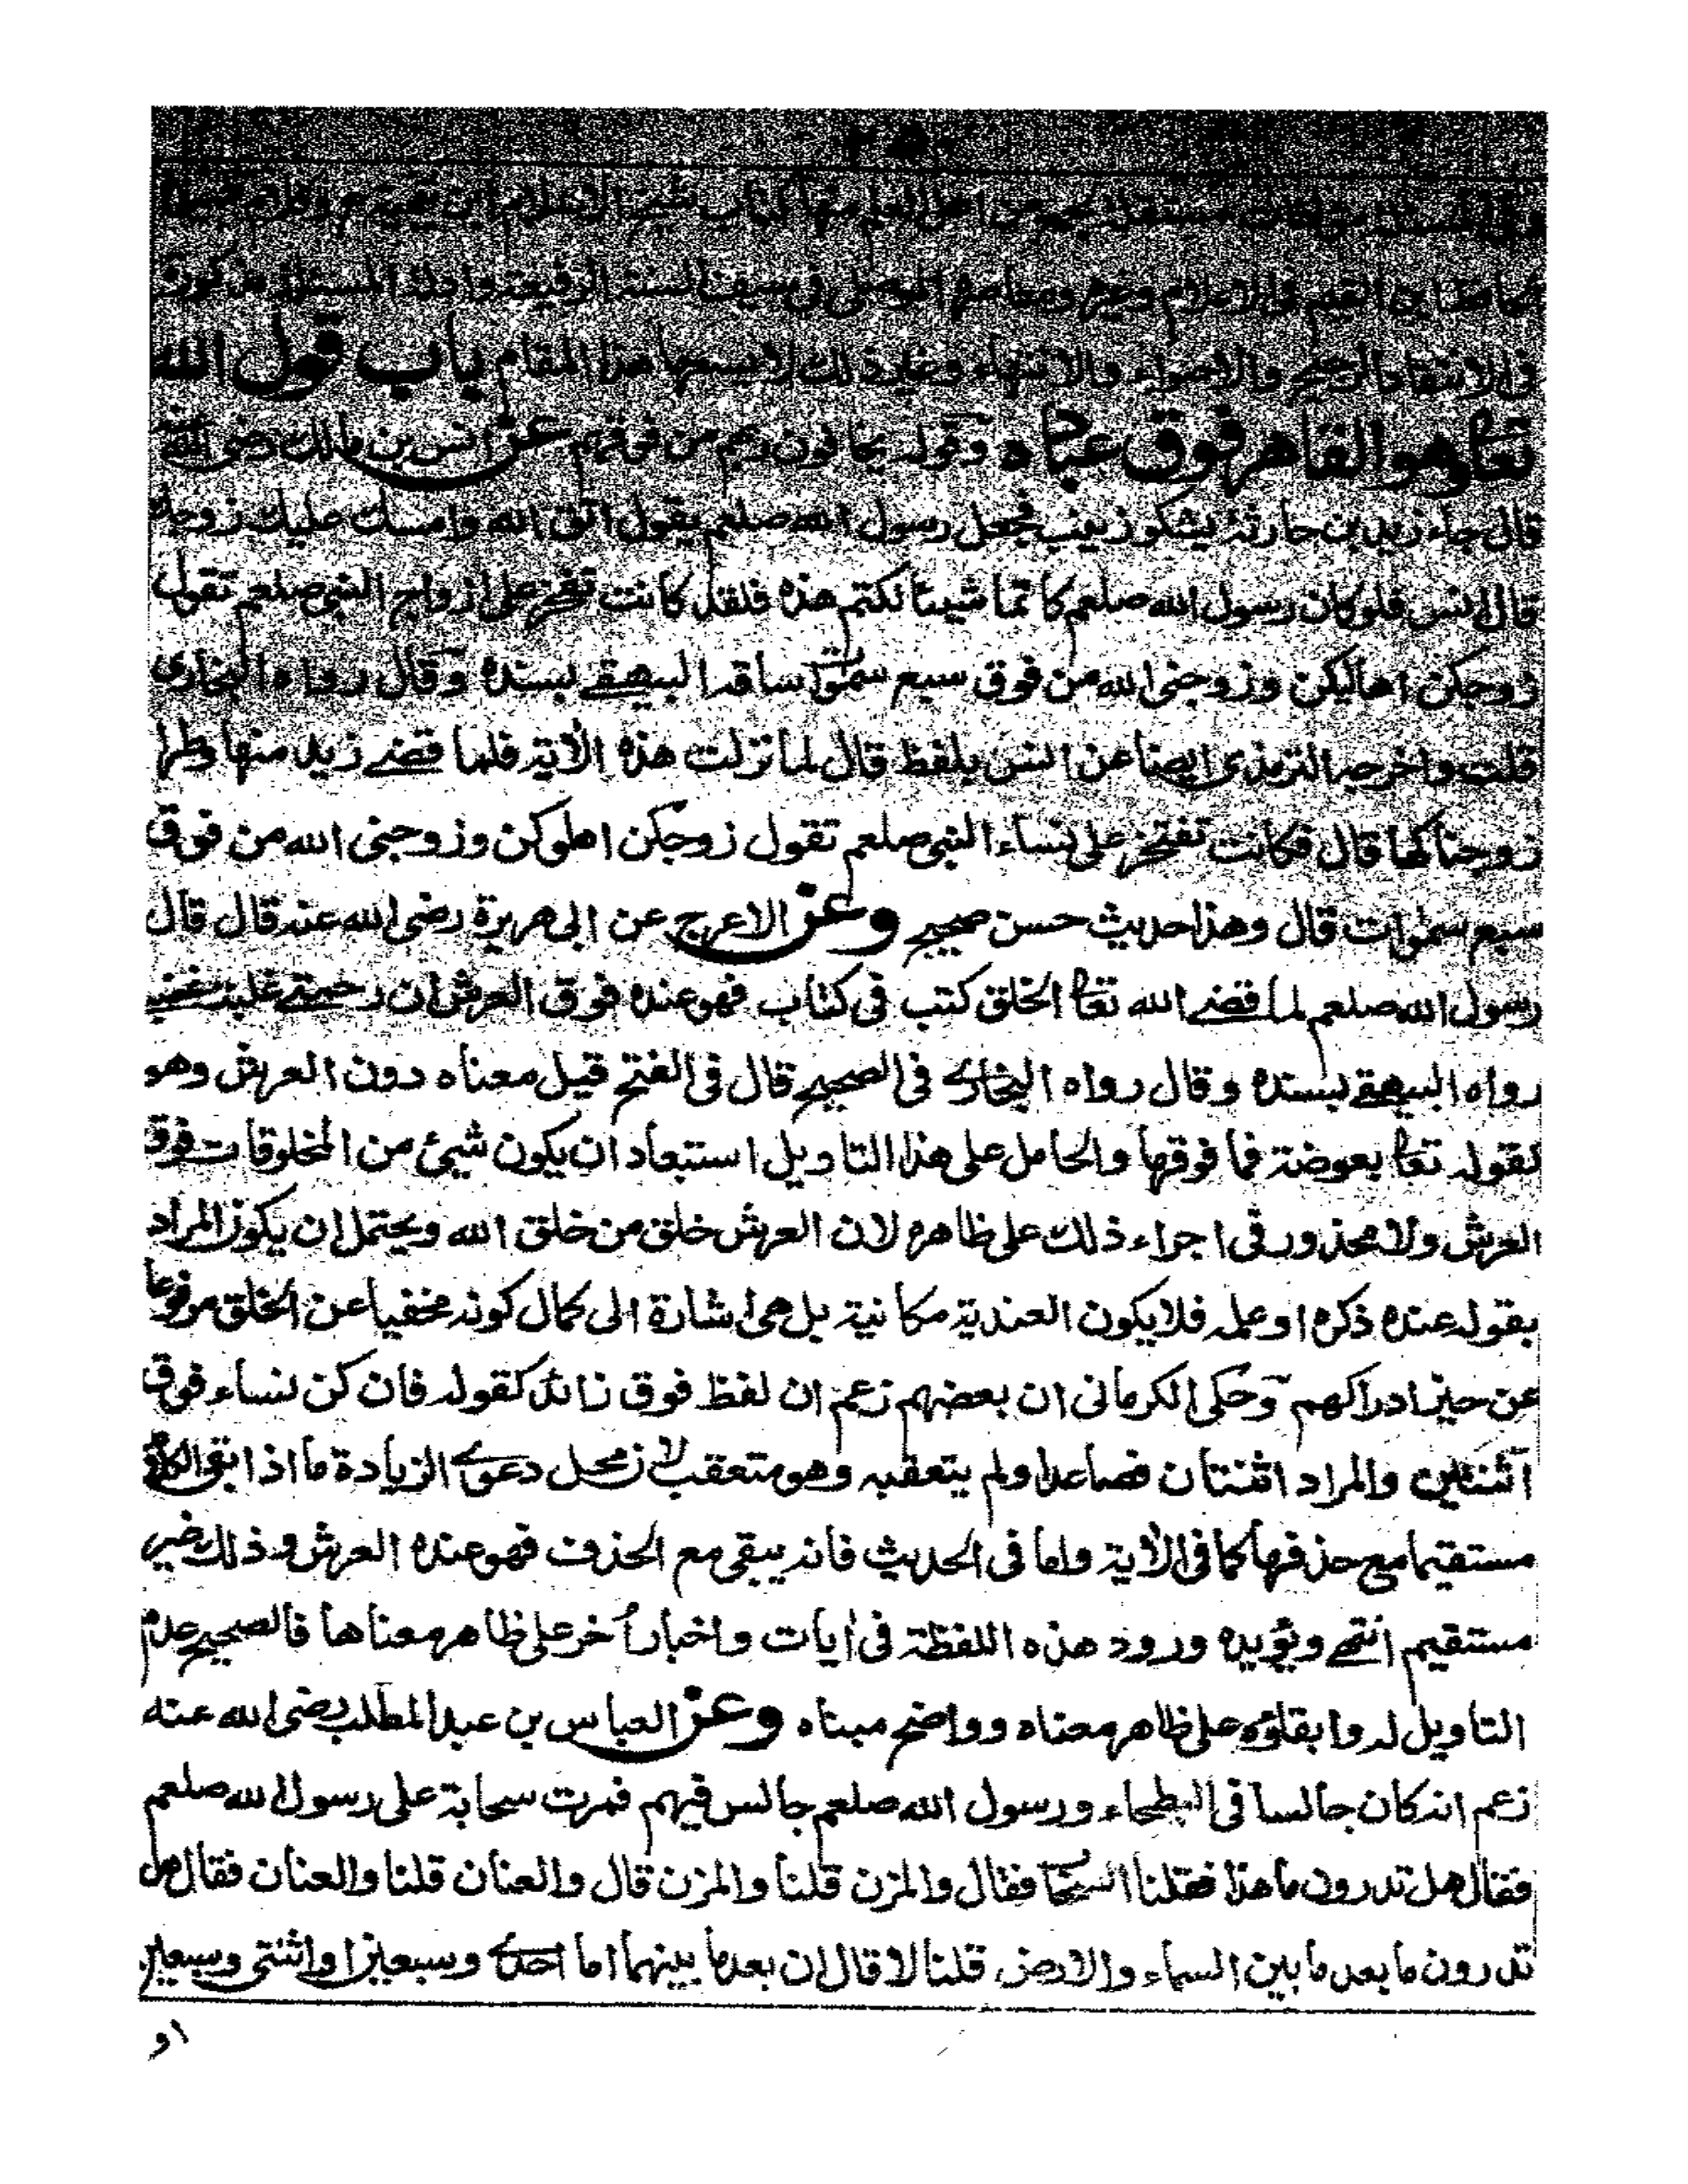 من اهل العلم منها كتاب شيخ الاسلام ابن تيمية
الحافظ ابن القيم في الاعلام وغيره
في الانتقاد الرجيح والاحتواء والانتهاء وغير ذلك لا يسعها هذا المقام باب قول الله
تعالى وهو القاهر فوق عباده وقوله يخافون ربهم من فوقهم عن انس بن مالك رضي الله عنه
قال جاء زيد بن حارثة يشكو زينب فجعل رسول الله صلعم يقول اتق الله وامسك عليك زوجك
قال انس فلو كان رسول الله صلعم كاتما شيئا لكتم هذه فلقد كانت تفخر على ازواج النبي صلعم تقول
زوجكن اهاليكن وزوجني الله من فوق سبع سموات ساقه البيهقي بسنده وقال رواه البخاري
قلت واخرجه الترمذي ايضا عن انس بلفظ قال لما نزلت هذه الآية فلما قضے زيد منها وطرا
زوجناكها قال فكانت تفتخر على نساء النبي صلعم تقول زوجكن اهلوكن وزوجني الله من فوق
سبع سموات قال وهذا حديث حسن صحيح وعن الاعرج عن ابي هريرة رضي الله عنه قال قال
رسول الله صلعم لما قضے الله تعالى الخلق كتب في كتاب فهو عنده فوق العرش ان رحمتے غلبت غضبے
رواه البيهقے بسنده وقال رواه البخارے في الصحيح قال في الفتح قيل معناه دون العرش وهو
كقوله تعالى بعوضة فما فوقها والحامل على هذا التاويل استبعاد ان يكون شيئ من المخلوقات فوق
العرش ولا محذور في اجراء ذلك على ظاهره لان العرش خلق من خلق الله ويحتمل ان يكون المراد
بقوله عنده ذكره او علمه فلا يكون العندية مكانية بل هي اشارة الى كمال كونه مخفيا عن الخلق مرفوعا
عن حيز ادراكهم وحكى الكرماني ان بعضهم زعم ان لفظ فوق زائد كقوله فان كن نساء فوق
اثنتين والمراد اثنتان فصاعدا ولم يتعقبه وهو متعقب لان محل دعوے الزيادة ما اذا بقي الكلام
مستقيما مع حذفها كما في الآية واما في الحديث فانه يبقى مع الحذف فهو عنده العرش وذلك غير
مستقيم انتهے ويؤيده ورود هذه اللفظة في ايات واخبار اُخر على ظاهر معناها فالصحيح عدم
التاويل له وابقاؤه على ظاهر معناه وواضح مبناه وعن العباس بن عبد المطلب رضي الله عنه
زعم انه كان جالسا في البطحاء ورسول الله صلعم جالس فيهم فمرت سحابة على رسول الله صلعم
فقال هل تدرون ما هذا فقلنا السحاب فقال والمزن قلنا والمزن قال والعنان قلنا والعنان فقال هل
تدرون ما بعد ما بين السماء والارض قلنا لا قال ان بعد ما بينهما اما احدے وسبعين او اثنتي وسبعين
او